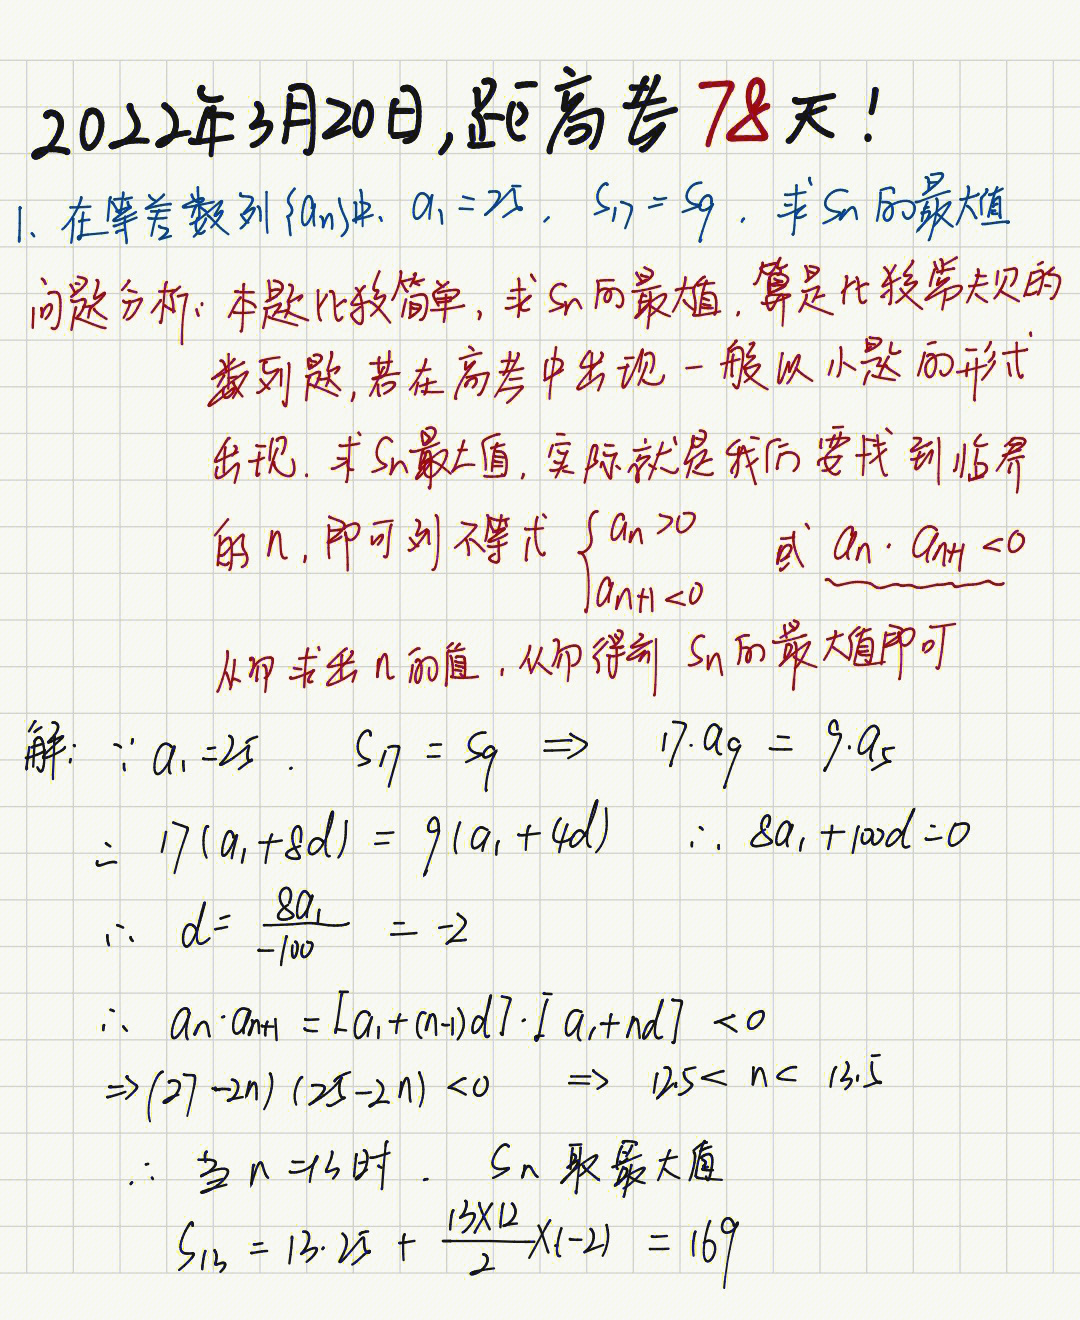 2022年3月20日,距高考78天!
1、在等差数列{an}中、a₁=25, S₁₇=S₉,求Sn的最大值
问题分析:本题比较简单,求Sn的最大值,算是比较常规的
数列题,若在高考中出现一般以小题的形式
出现.求Sn最大值,实际就是我们要找到临界
的n,即可列不等式 {an>0 an+1<0 或 an·an+1<0
从而求出n的值,从而得到Sn的最大值即可
解:∵a₁=25. S₁₇=S₉ ⇒ 17·a₉=9·a₅
∴ 17(a₁+8d)=9(a₁+4d) ∴ 8a₁+100d=0
∴ d=8a₁/-100=-2
∴ an·an+1=[a₁+(n-1)d]·[a₁+nd]<0
⇒(27-2n)(25-2n)<0 ⇒ 12.5<n<13.5
∴ 当n=13时. Sn取最大值
S₁₃=13·25+13×12/2×(-2)=169